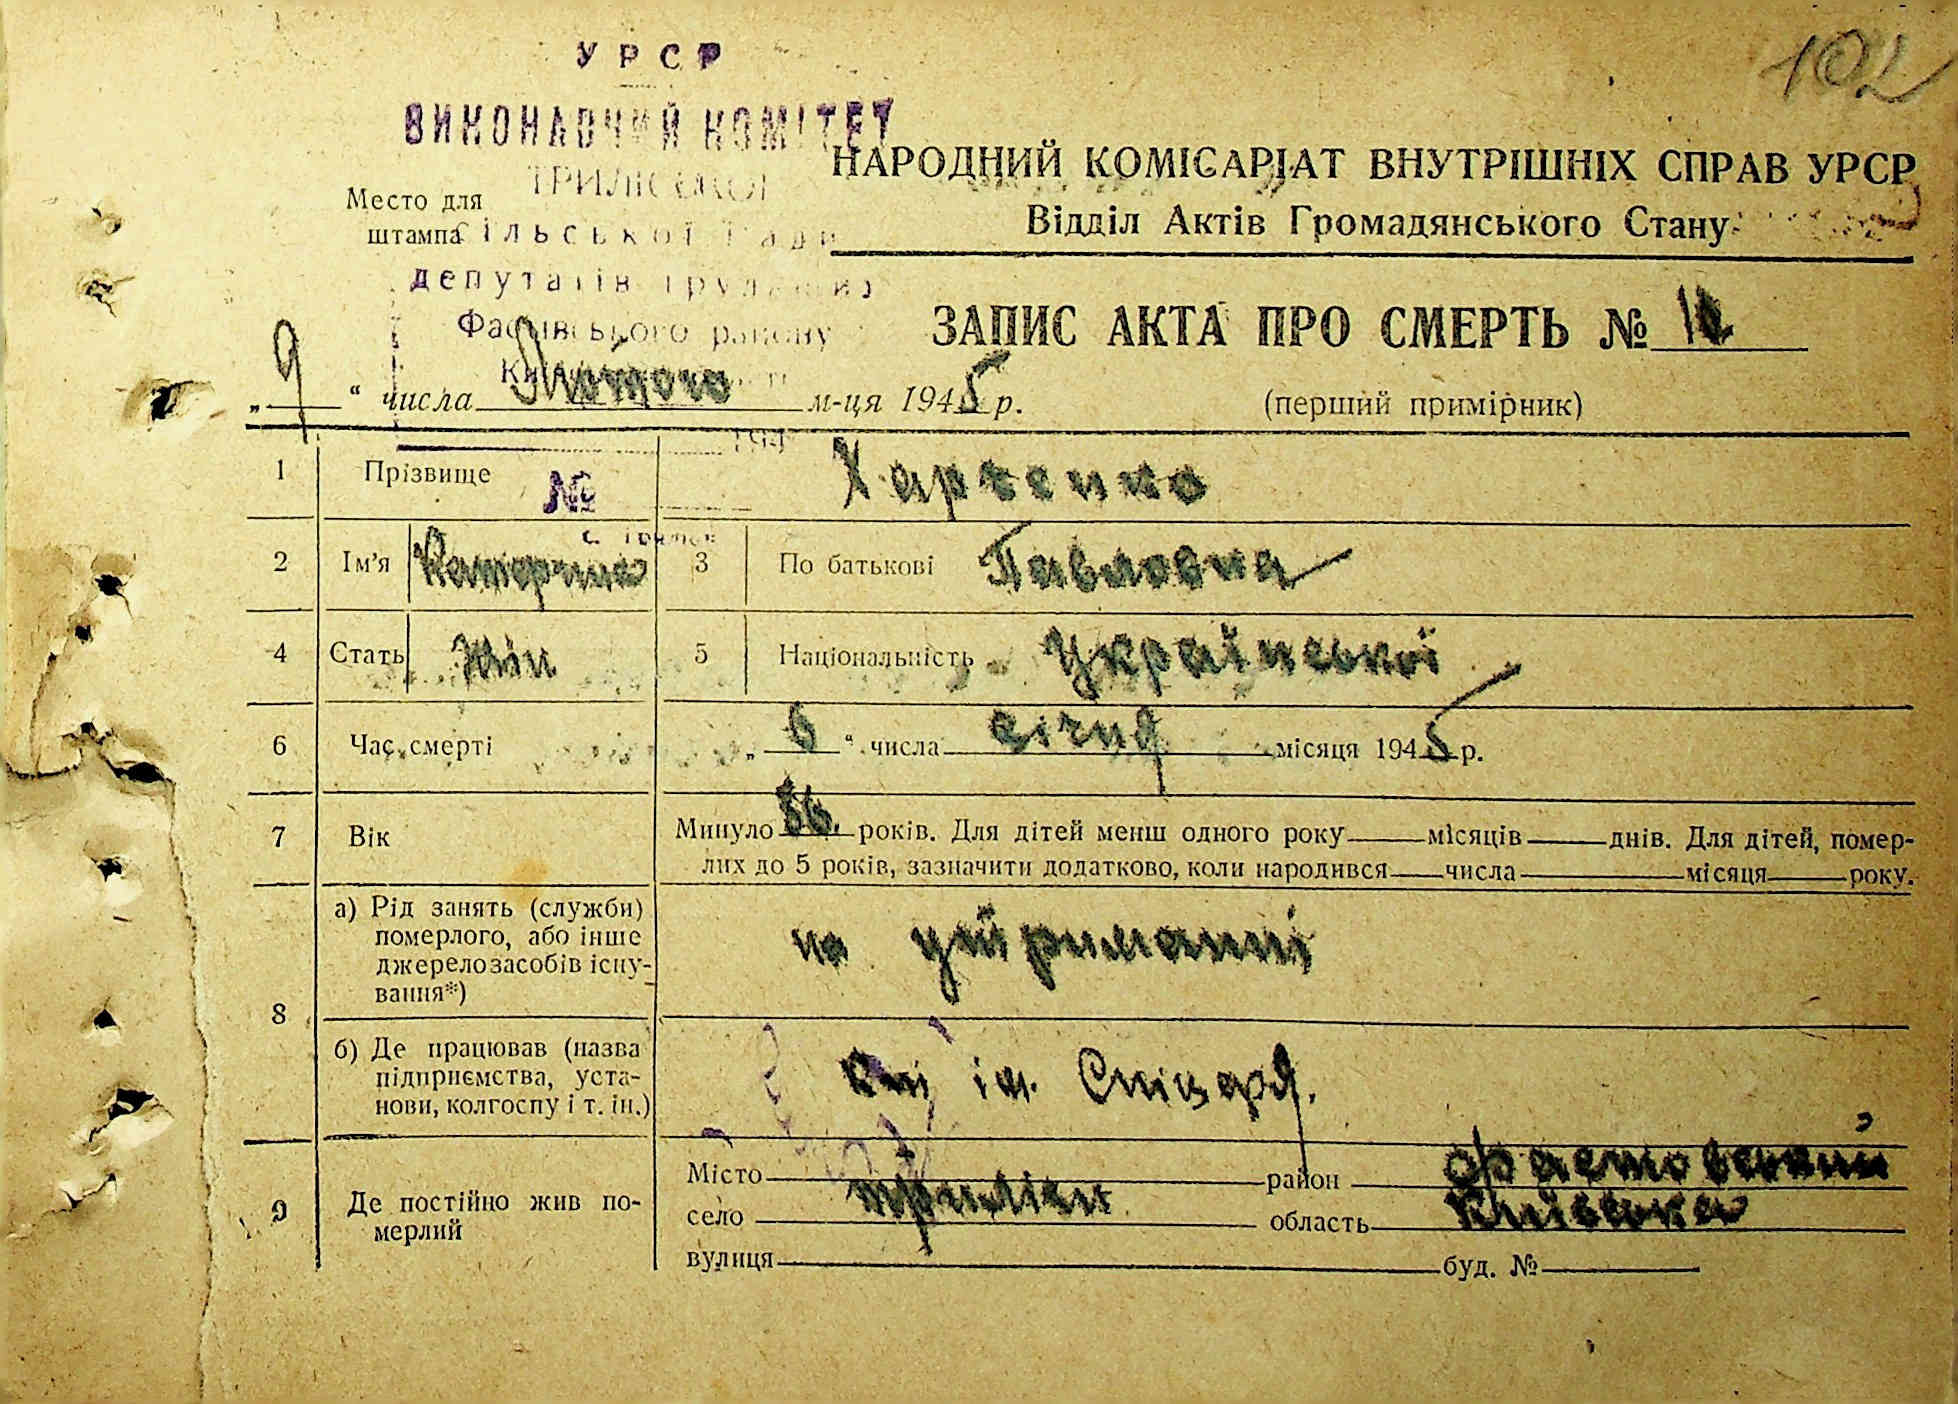 102
УРСР
ВИКОНАВЧИЙ КОМІТЕТ
ТРИЛІСЬКОЇ
Место для
штампа
сільської Ради
депутатів трудящих
Фастівського району
НАРОДНИЙ КОМІСАРІАТ ВНУТРІШНІХ СПРАВ УРСР
Відділ Актів Громадянського Стану
ЗАПИС АКТА ПРО СМЕРТЬ №
„9“ числа Лютого м-ця 1945 р.
(перший примірник)
194
1 Прізвище Харченко
№
2 Ім'я Катерина 3 По батькові Павловна
4 Стать Жін 5 Національність Української
6 Час смерті „6“ числа січня місяця 1945 р.
7 Вік Минуло 86. років. Для дітей менш одного року місяців днів. Для дітей, помер-
лих до 5 років, зазначити додатково, коли народився числа місяця року.
8 а) Рід занять (служби)
померлого, або інше
джерело засобів існу-
вання*)
на утриманні
б) Де працював (назва
підприємства, уста-
нови, колгоспу і т. ін.)
ім.
9 Де постійно жив по-
мерлий
Місто район Фастовський
село Триліси область Київська
вулиця буд. №